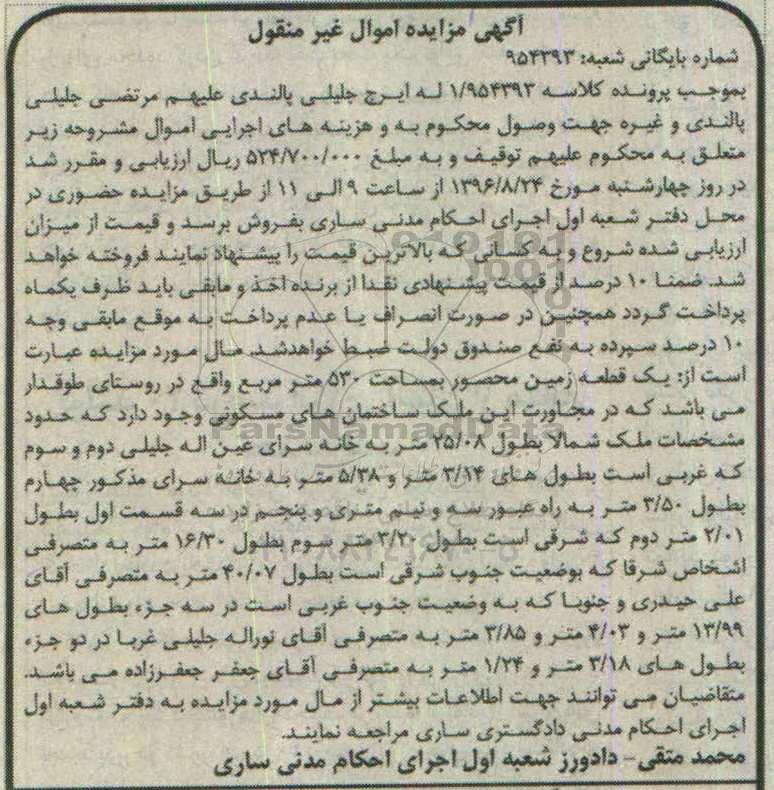 آگهی مزایده اموال غیر منقول
شماره بایگانی شعبه: ۹۵۴۳۹۳
بموجب پرونده کلاسه ۱/۹۵۴۳۹۳ له ایرج جلیلی پالندی علیهم مرتضی جلیلی
پالندی و غیره جهت وصول محکوم به و هزینه های اجرایی اموال مشروحه زیر
متعلق به محکوم علیهم توقیف و به مبلغ ۵۳۴/۷۰۰/۰۰۰ ریال ارزیابی و مقرر شد
در روز چهارشنبه مورخ ۱۳۹۶/۸/۲۴ از ساعت ۹ الی ۱۱ از طریق مزایده حضوری در
محل دفتر شعبه اول اجرای احکام مدنی ساری بفروش برسد و قیمت از میزان
ارزیابی شده شروع و به کسانی که بالاترین قیمت را پیشنهاد نمایند فروخته خواهد
شد. ضمنا ۱۰ درصد از قیمت پیشنهادی نقدا از برنده اخذ و مابقی باید ظرف یکماه
پرداخت گردد همچنین در صورت انصراف یا عدم پرداخت به موقع مابقی وجه
۱۰ درصد سپرده به نفع صندوق دولت ضبط خواهدشد. مال مورد مزایده عبارت
است از: یک قطعه زمین محصور بمساحت ۵۳۰ متر مربع واقع در روستای طوقدار
می باشد که در مجاورت این ملک ساختمان های مسکونی وجود دارد که حدود
مشخصات ملک شمالا بطول ۲۵/۰۸ متر به خانه سرای عین اله جلیلی دوم و سوم
که غربی است بطول های ۳/۱۴ متر و ۵/۳۸ متر به خانه سرای مذکور چهارم
بطول ۳/۵۰ متر به راه عبور سه و نیم متری و پنجم در سه قسمت اول بطول
۲/۰۱ متر دوم که شرقی است بطول ۳/۲۰ متر سوم بطول ۱۶/۳۰ متر به متصرفی
اشخاص شرقا که بوضعیت جنوب شرقی است بطول ۴۰/۰۷ متر به متصرفی آقای
علی حیدری و جنوبا که به وضعیت جنوب غربی است در سه جزء بطول های
۱۳/۹۹ متر و ۴/۰۳ متر و ۳/۸۵ متر به متصرفی آقای نوراله جلیلی غربا در دو جزء
بطول های ۳/۱۸ متر و ۱/۲۴ متر به متصرفی آقای جعفر جعفرزاده می باشد.
متقاضیان می توانند جهت اطلاعات بیشتر از مال مورد مزایده به دفتر شعبه اول
اجرای احکام مدنی دادگستری ساری مراجعه نمایند.
محمد متقی- دادورز شعبه اول اجرای احکام مدنی ساری
ParsNamadData